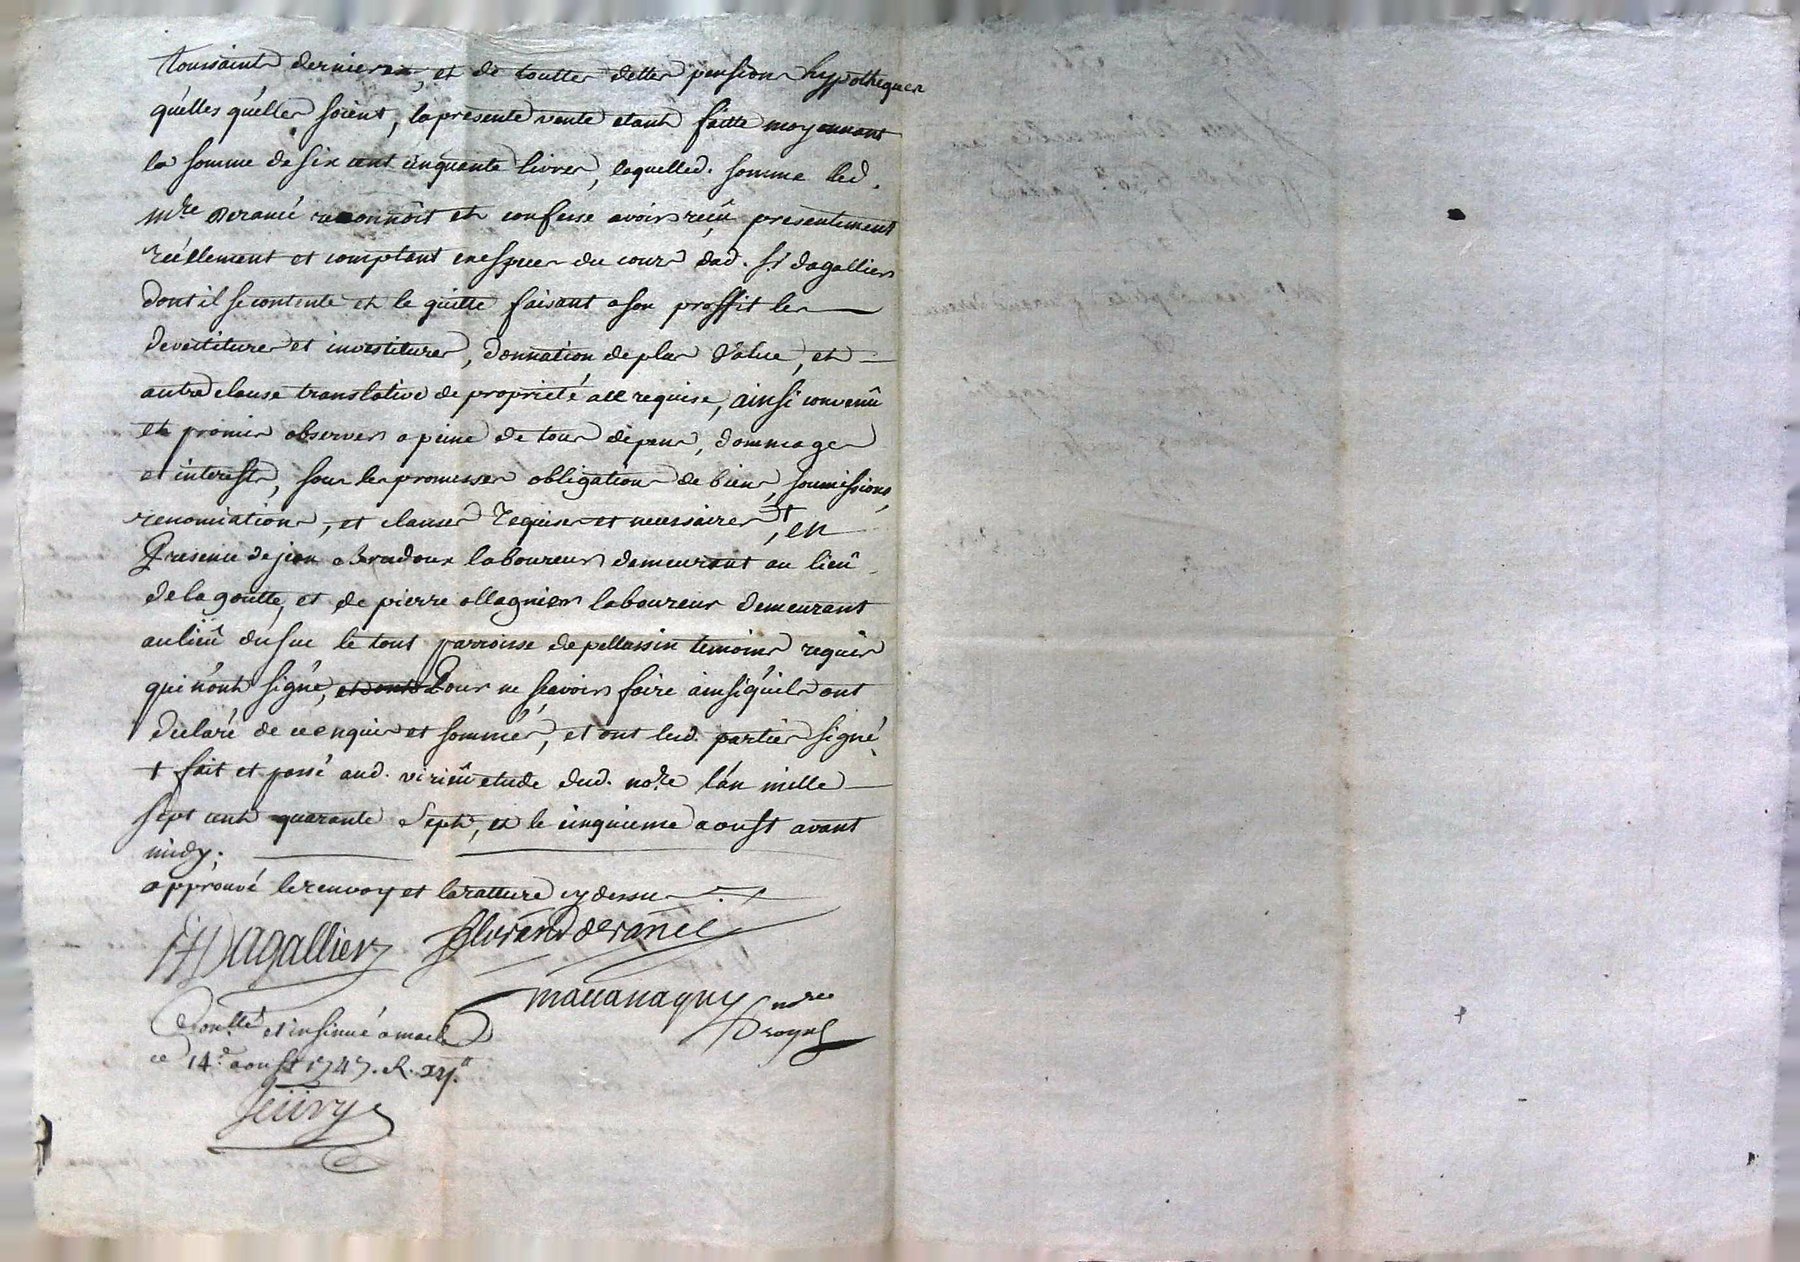 toussaints derniere, et de touttes dettes pensions hypotheques
quélles qu'élles soient, la presente vente etant faitte moyennant
la somme de six cent cinquante livres, laquelled. somme led.
mre deramé reconnoit et confesse avoir reçû presentement
réellement et comptant en especes du cours dud. sr dagallier
dont il se contente et le quitte faisant a son proffit les
devestitures et investitures, donnation de plus value, et
autre clause translative de propriété ace requise, ainsi convenû
et promis observer a peine de tous dépens, dommages
et interests, sous les promesses obligations de biens, soumissions,
renonciations, et clauses requises et necessaires, + en
Presence de jean Bradoux laboureur demeurant au lieû
de la goutte, et de pierre ollagnier laboureur demeurant
au lieû du suc le tout parroisse de pellussin temoins requis
qui n'ont signé, et ont Pour ne sçavoir faire ainsi qu'ils ont
declaré de ce enquis et sommés, et ont lesd. parties signé
+ fait et passé aud. virieû etude dud. nore l'an mille
sept cent quarante sept, et le cinquieme aoust avant
midy.
approuvé le renvoy et la rature cy dessus
Dagallier
mre
royal
Conllé et insinué a
ce 14e aoust 1747. R.